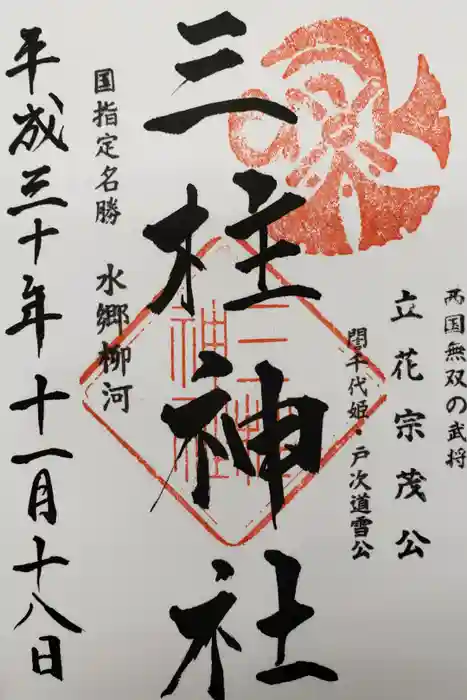 西国無双の武将
立花宗茂公
誾千代姫・戸次道雪公
三柱神社
三柱神社
国指定名勝 水郷柳河
平成三十年十一月十八日